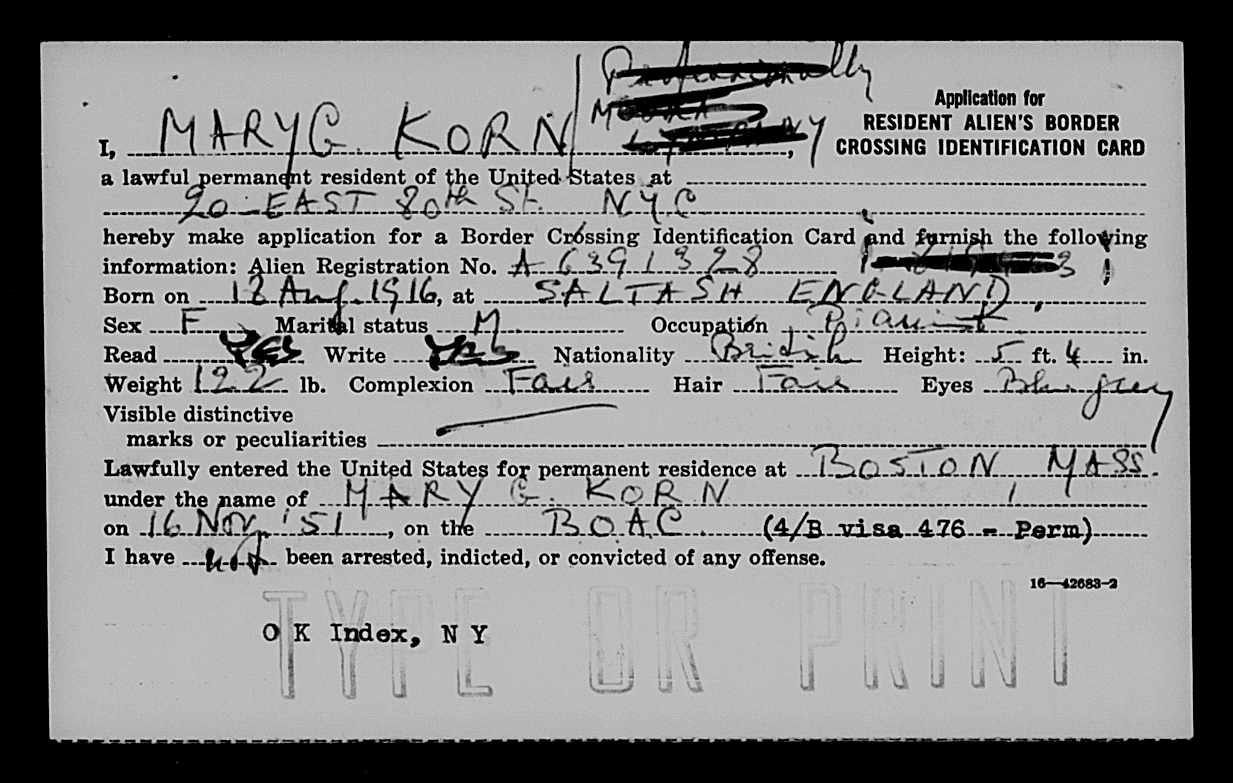 Professionally
MOURA
LYMPANY
Application for
RESIDENT ALIEN'S BORDER
CROSSING IDENTIFICATION CARD
I, MARY G. KORN /
a lawful permanent resident of the United States at
20 EAST 80th St. NYC
hereby make application for a Border Crossing Identification Card and furnish the following
information: Alien Registration No. A 6391328
Born on 18 Aug. 1916, at SALTASH ENGLAND.
Sex F Marital status M. Occupation Pianist
Read Yes Write Yes Nationality British Height: 5 ft. 4 in.
Weight 122 lb. Complexion Fair Hair Fair Eyes Blue grey
Visible distinctive
marks or peculiarities
Lawfully entered the United States for permanent residence at BOSTON, MASS.
under the name of MARY G. KORN
on 16 Nov. '51, on the B.O.A.C. (4/B visa 476 - Perm)
I have not been arrested, indicted, or convicted of any offense.
16—42683-2
TYPE OR PRINT
O K Index, N Y